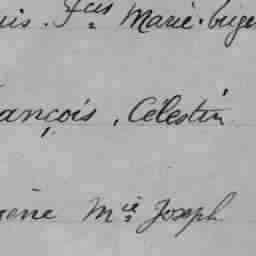 uis. Fcis Marie. Euge
ançois, Célestin
gène Mie Joseph